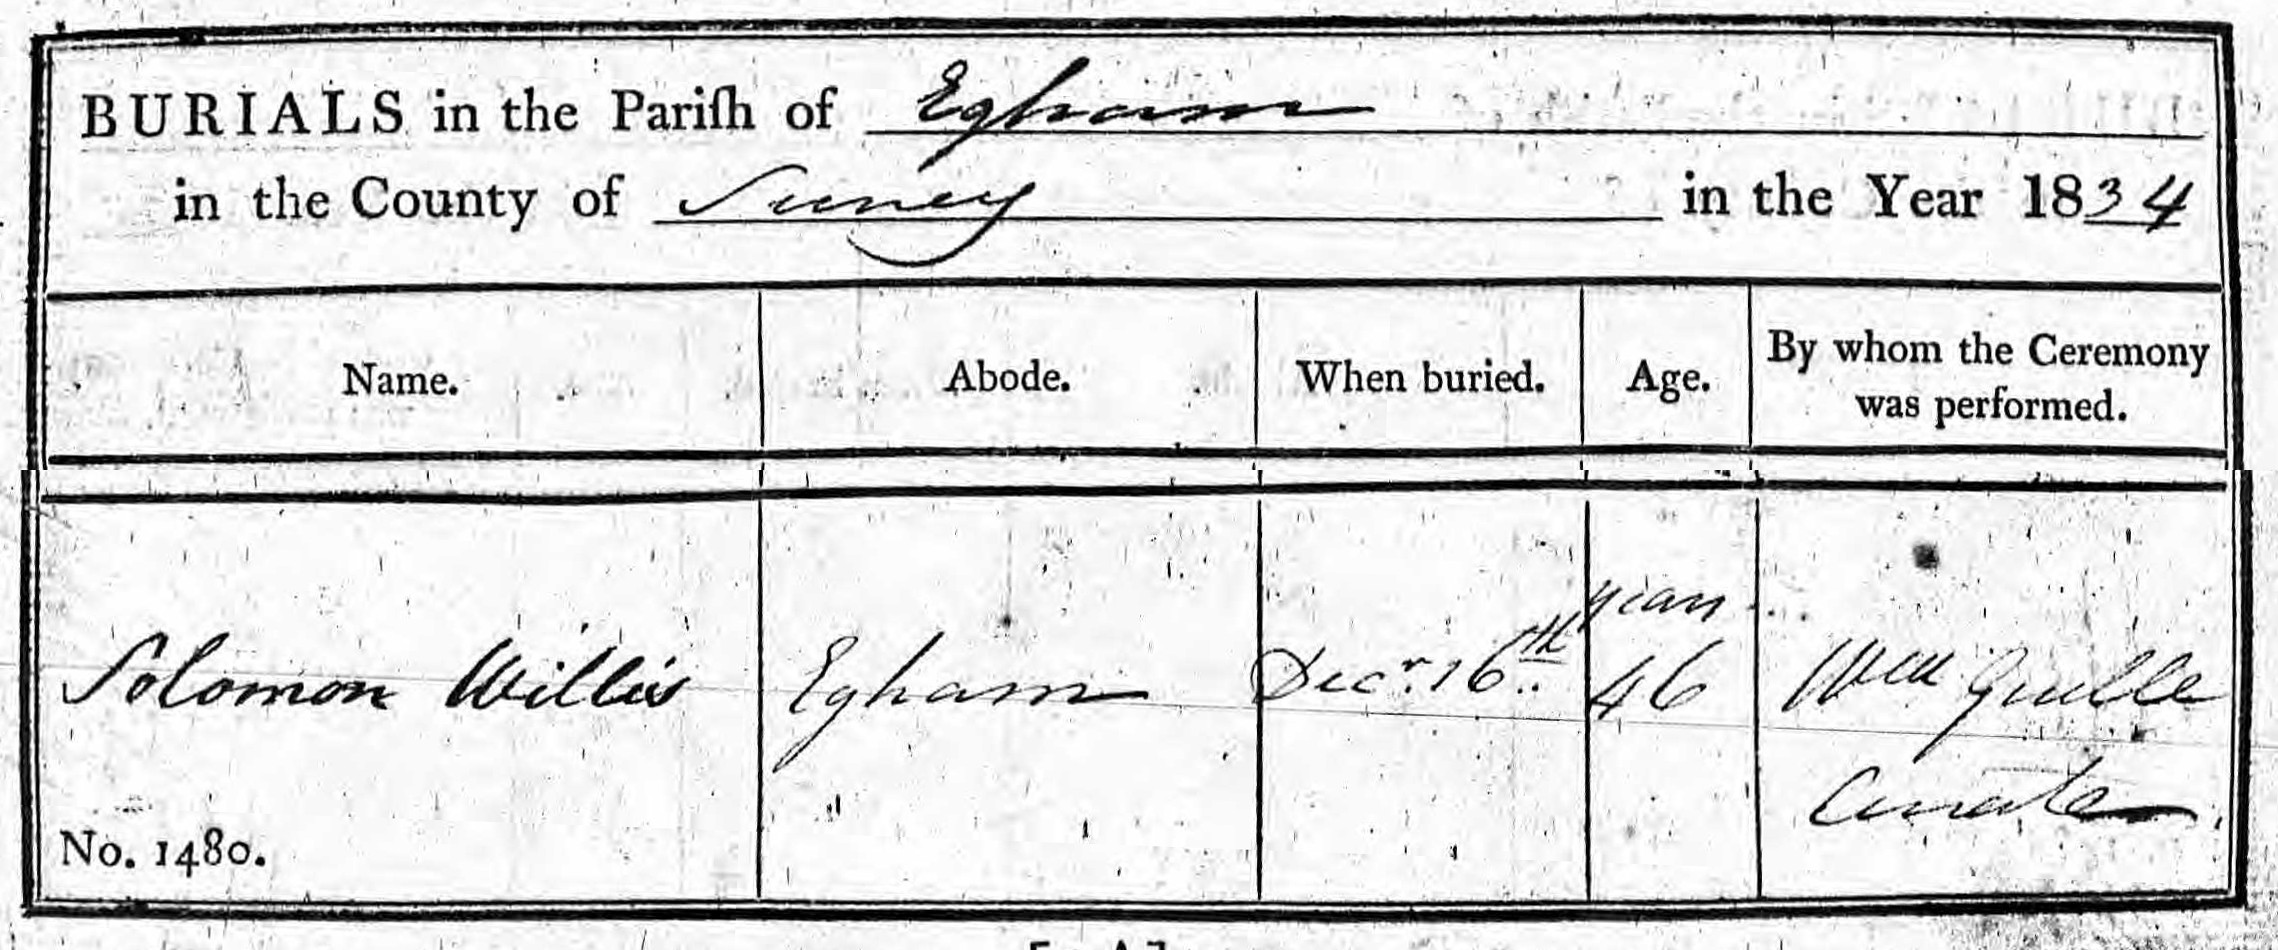 BURIALS in the Pariſh of Egham
in the County of Surrey in the Year 1834
Name. Abode. When buried. Age. By whom the Ceremony was performed.
years
Solomon Willis Egham Decr. 16th 46 Wm
Curate
No. 1480.